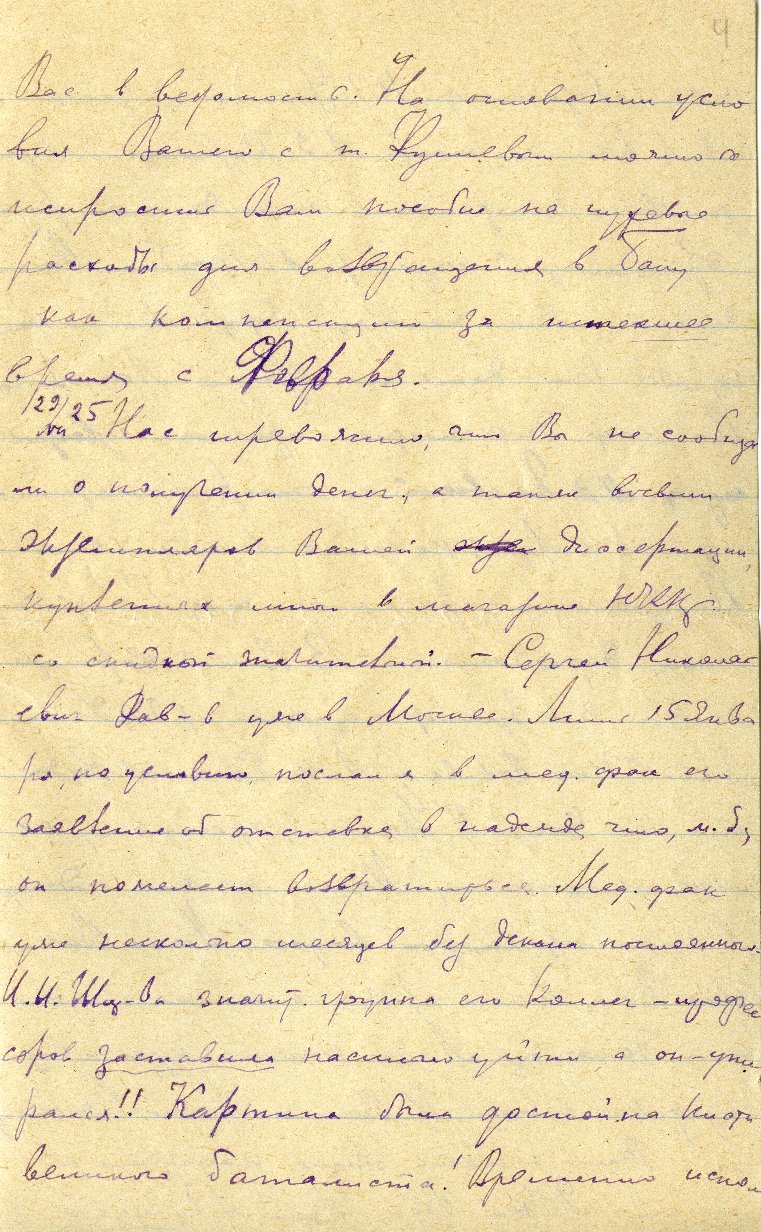 4
Вас в ведомость. На основании усло
вия Вашего с т. Кушевым можно б
испросить Вам пособие на путевые
расходы для возвращения в Баку
как компенсацию за истекшее
время с Февраля.
29/VII 25 Нас тревожило, что Вы не сообща
ли о получении денег, а также восьми
экземпляров Вашей диссертации,
купленных мною в магазине
со скидкой значительной. – Сергей Никола
евич Кав-в уже в Москве. Лишь 15 Янва
ря, по условию, послал я в мед. фак его
заявление об отставке, в надежде что, м. б.,
он пожелает возвратиться. Мед. фак
уже несколько месяцев без декана постоянного.
И.И. Ш-ва значит. группа его коллег – профес
соров заставила насильно уйти, а он – упи
рался!! Картина была достойна кисти
великого баталиста! Временно испол